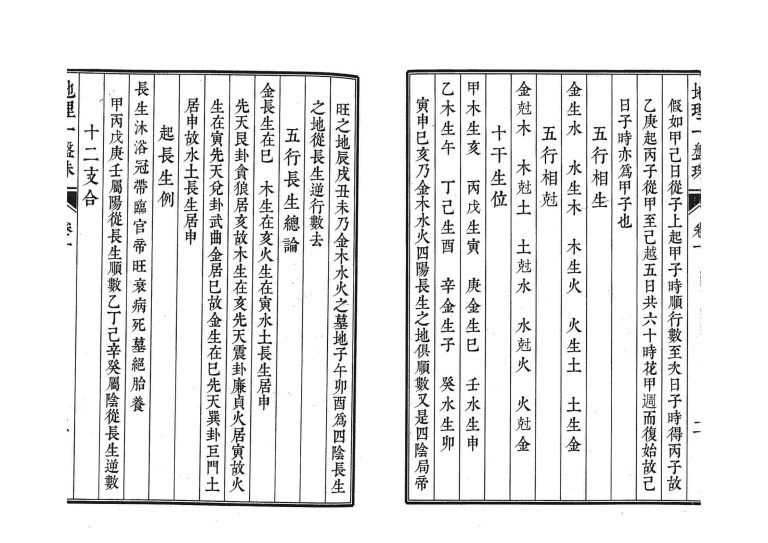 地理一盤珠
卷一
二
假如甲己日從子上起甲子時順行數至次日子時得丙子故
乙庚起丙子從甲至己越五日共六十時花甲週而復始故己
日子時亦爲甲子也
五行相生
金生水 水生木 木生火 火生土 土生金
五行相尅
金尅木 木尅土 土尅水 水尅火 火尅金
十干生位
甲木生亥 丙戊生寅 庚金生巳 壬水生申
乙木生午 丁己生酉 辛金生子 癸水生卯
寅申巳亥乃金木水火四陽長生之地俱順數又是四陰局帝
旺之地辰戌丑未乃金木水火之墓地子午卯酉爲四陰長生
之地從長生逆行數去
五行長生總論
金長生在巳 木生在亥火生在寅水土長生居申
先天艮卦貪狼居亥故木生在亥先天震卦廉貞火居寅故火
生在寅先天兌卦武曲金居巳故金生在巳先天巽卦巨門土
居申故水土長生居申
起長生例
長生沐浴冠帶臨官帝旺衰病死墓絕胎養
甲丙戊庚壬屬陽從長生順數乙丁己辛癸屬陰從長生逆數
十二支合
地理一盤珠
卷一